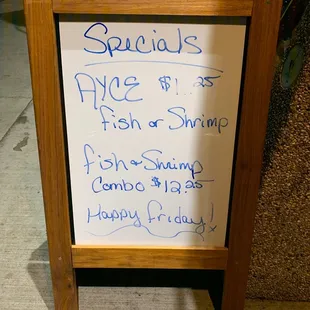 Specials
AYCE
Fish or Shrimp
fish & Shrimp
Combo $12.25
Happy friday!